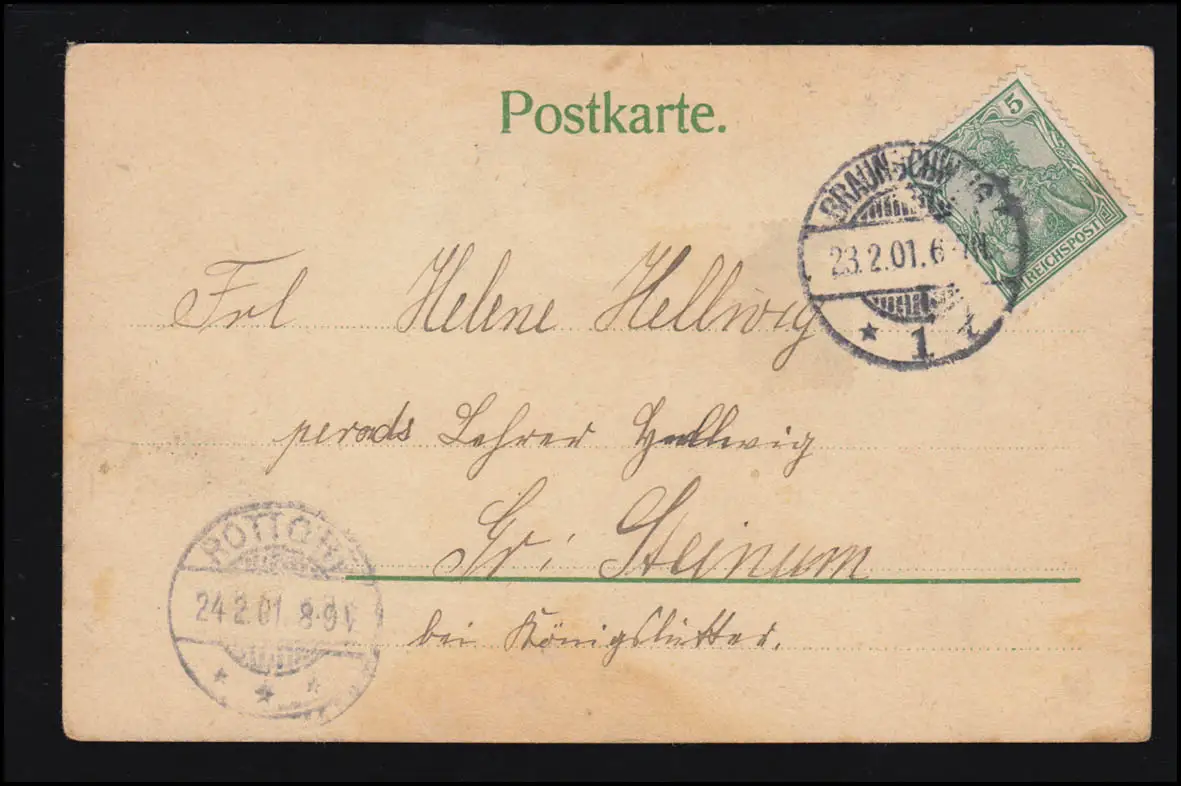 Postkarte.
5
REICHSPOST
BRAUNSCHWEIG
23.2.01.6-7N.
* 1
Frl Helene Hellwig
Lehrer Hellwig
Gr: Steinum
bei Königslutter.
24.2.01. 8-9V
* * *